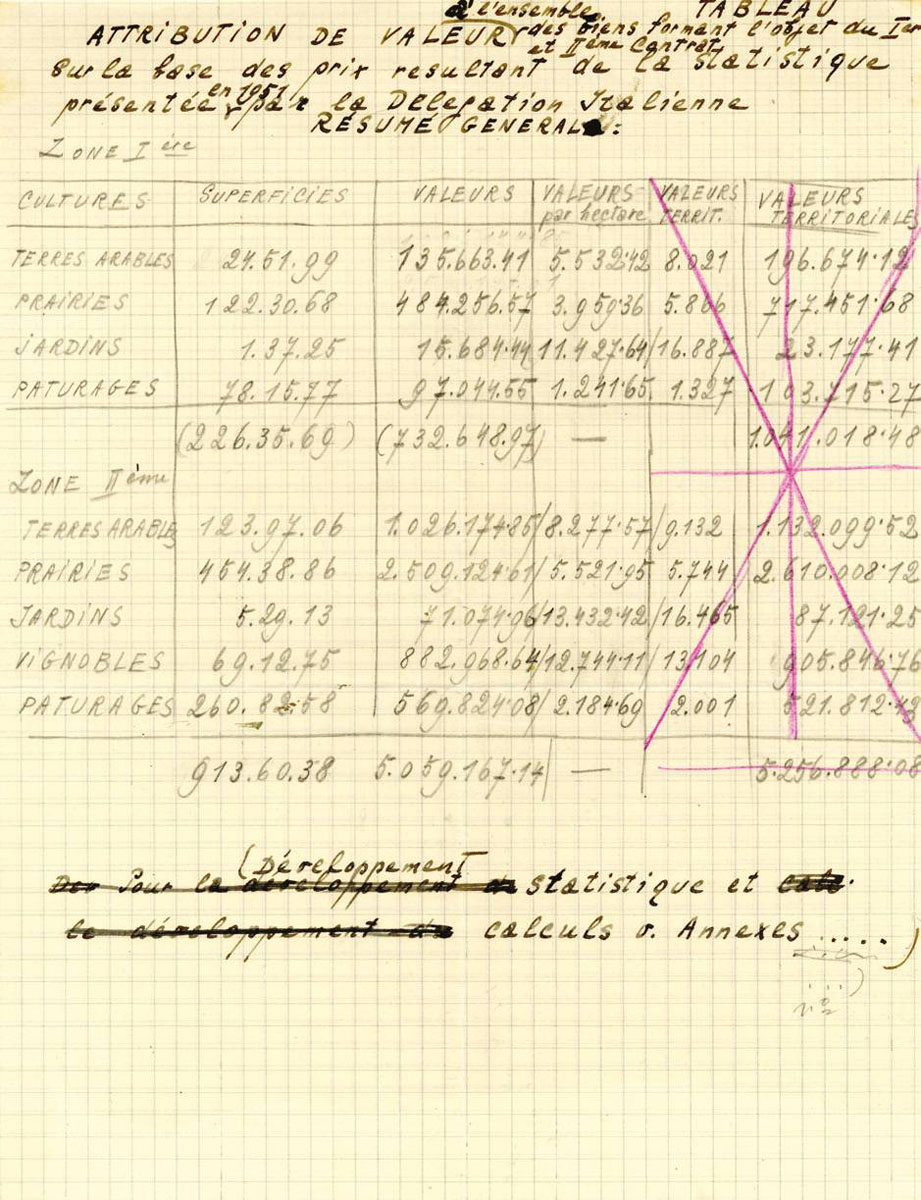 TABLEAU
ATTRIBUTION DE VALEUR à l'ensemble des biens formant l'objet du Ier et IIème Contrat
sur la base des prix resultant de la statistique
présentée en 1951 par la Délégation Italienne
RESUMÉ GENERAL:
ZONE Ière
CULTURES SUPERFICIES VALEURS VALEURS par hectare VALEURS TERRIT. VALEURS TERRITORIALES
TERRES ARABLES 24.51.99 135.663.41 5.532.42 8.021 196.674.12
PRAIRIES 122.30.68 484.256.57 3.959.36 5.866 717.451.68
JARDINS 1.37.25 15.684.44 11.427.64 16.887 23.177.41
PATURAGES 78.15.77 97.044.55 1.241.65 1.327 103.715.27
(226.35.69) (732.648.97) — 1.041.018.48
ZONE IIème
TERRES ARABLES 123.97.06 1.026.174.85 / 8.277.57 / 9.132 1.132.099.52
PRAIRIES 454.38.86 2.509.124.61 / 5.521.95 5.744 2.610.008.12
JARDINS 5.29.13 71.074.96 / 13.432.42 / 16.465 87.121.25
VIGNOBLES 69.12.75 882.968.64 / 12.744.11 / 13.104 905.846.76
PATURAGES 260.82.58 569.824.08 / 2.184.69 2.001 521.812.42
913.60.38 5.059.167.14 — 5.256.888.08
(Développement
Pour le développement de statistique et calc.
le développement de calculs v. Annexes .....)